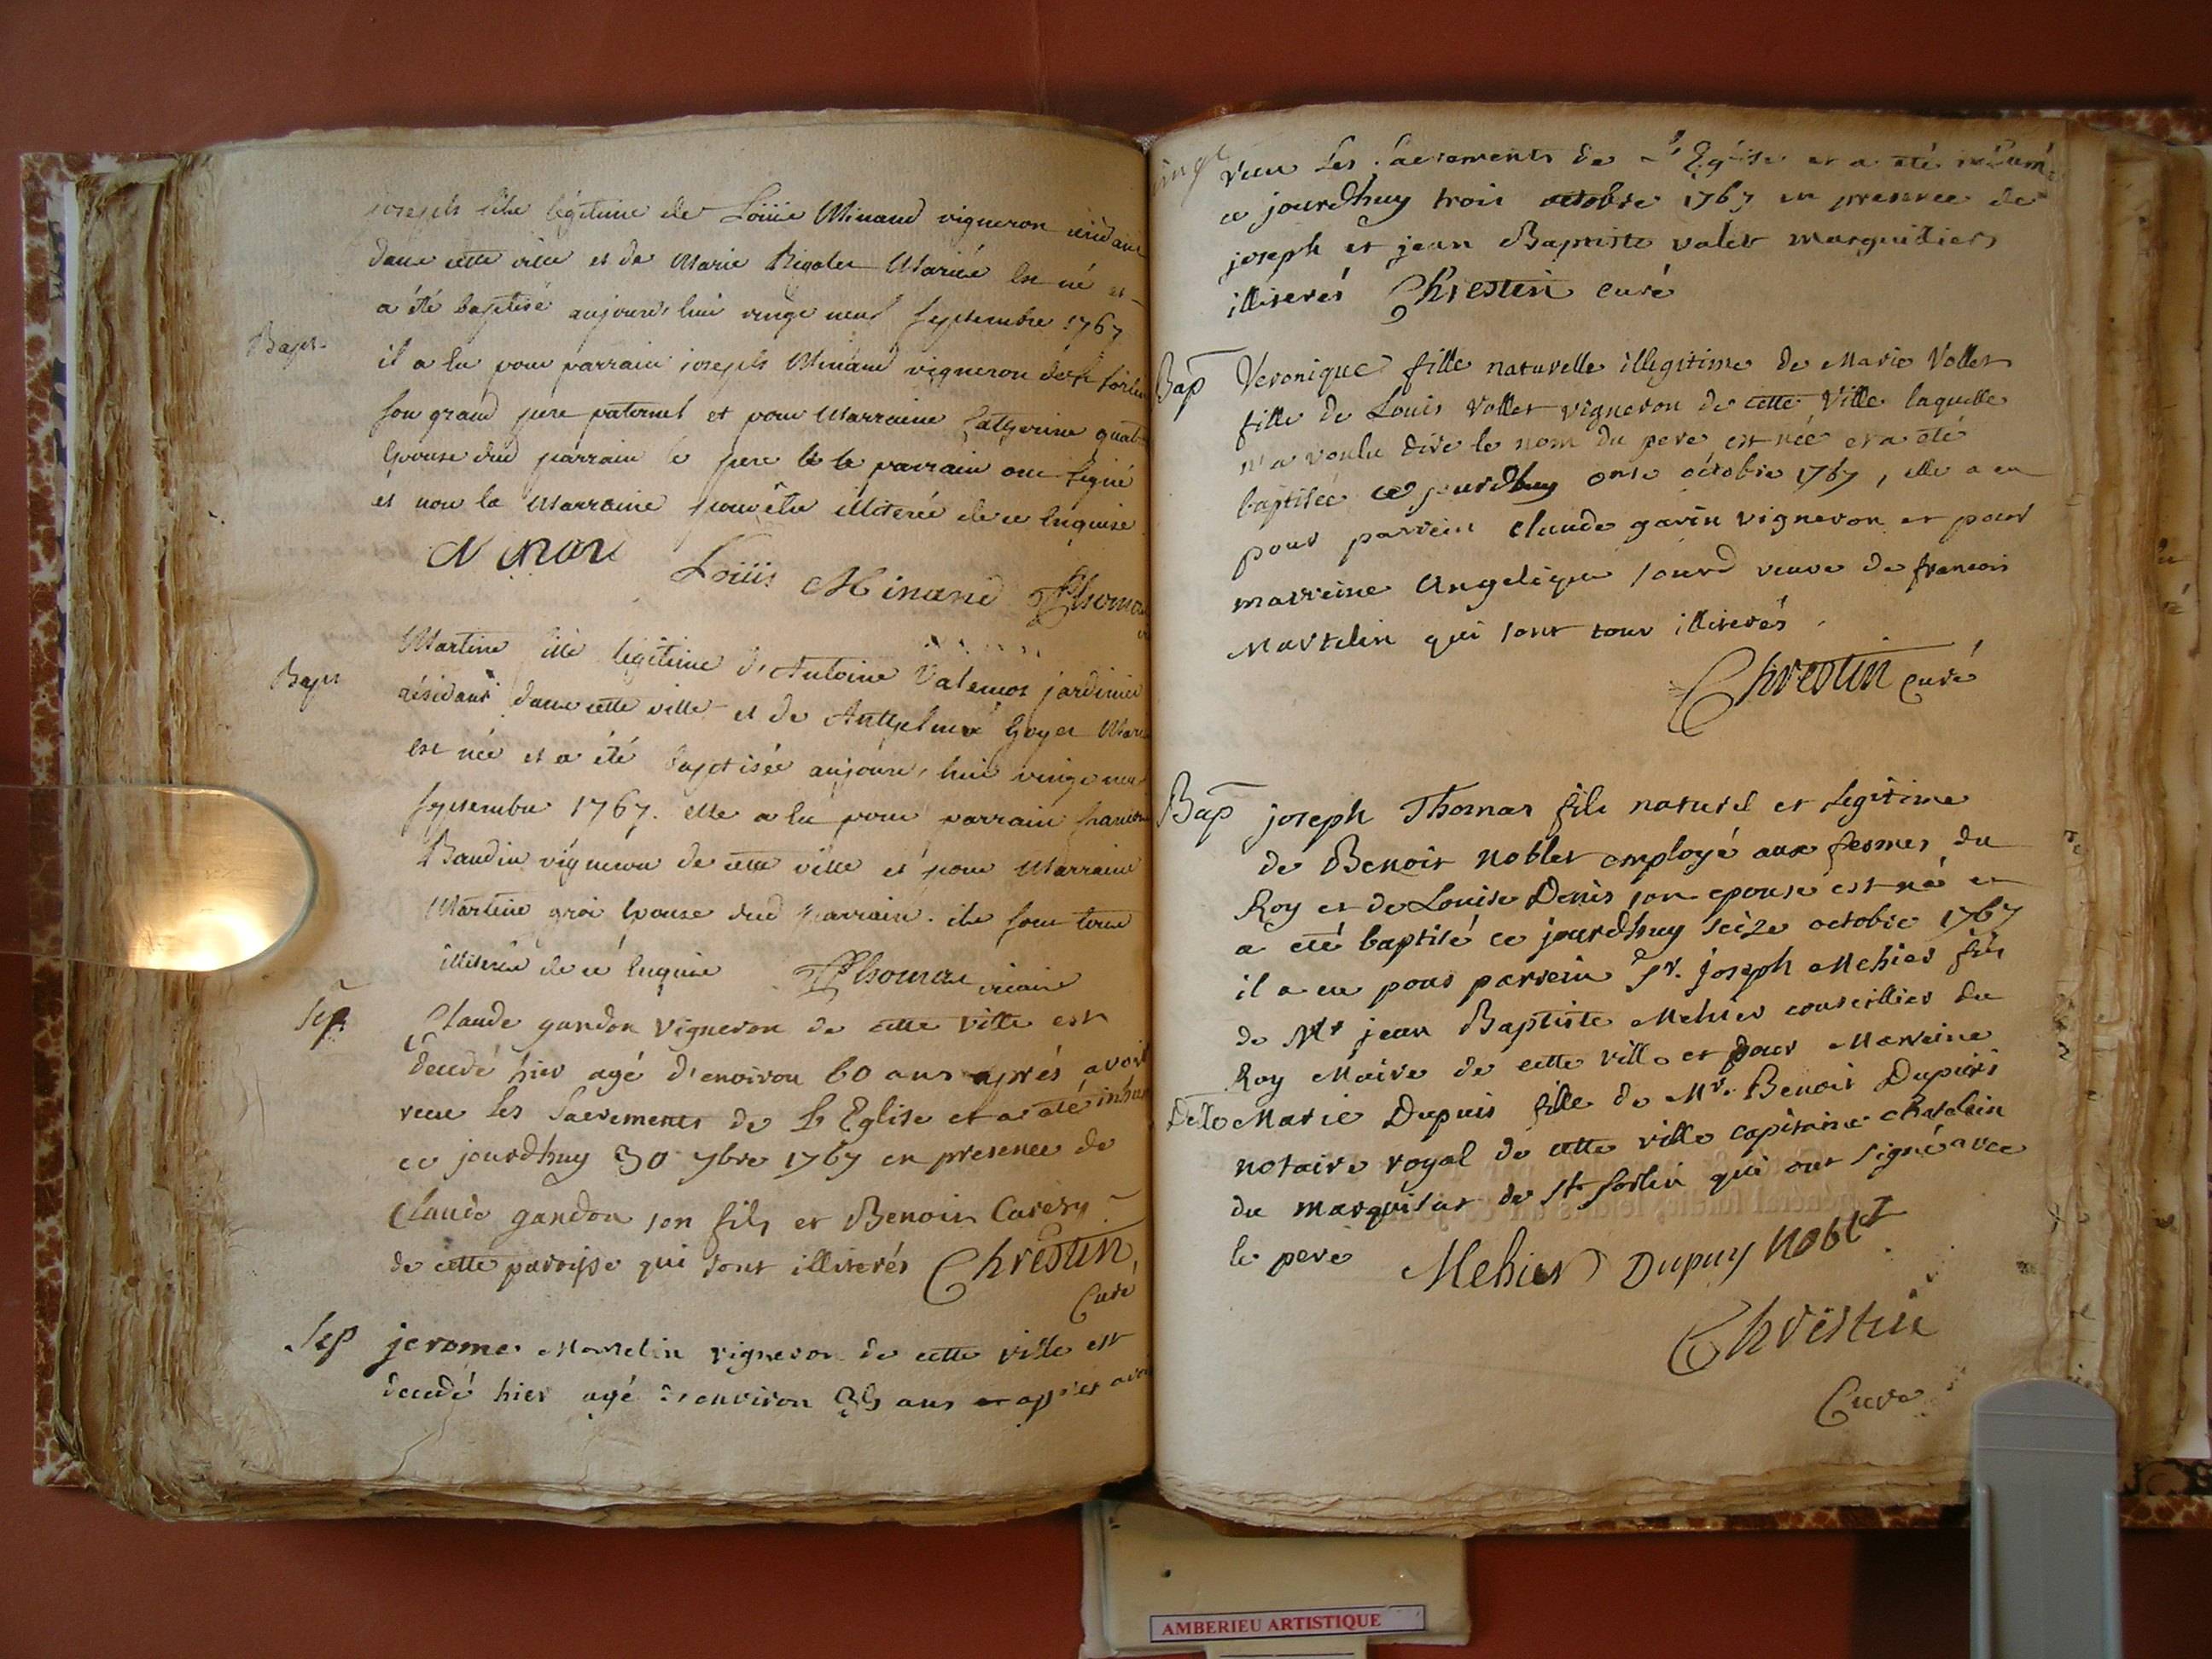 joseph fils légitime de Loüis Minand vigneron résidant
dans cette ville et de Marie Rigolet Mariés est né et
a été baptisé aujourd'hui vingt neuf septembre 1767
Bapt.
il a eu pour parrain joseph Minand vigneron de St sorlin
son grand pere paternel et pour Marraine Catherine
Epouse dud parrain le pere et le parrain ont signé
et non la Marraine pour être illiterée de ce Enquise
Loüis Minand Thomas
Bapt
Martine fille légitime d'Antoine Valemot jardinier
résidant dans cette ville et de Anthelmée Goyet
est née et a été baptisée aujourd'hui vingt neuf
septembre 1767. elle a eu pour parrain
Baudin vigneron de cette ville et pour Marraine
Martine groi Epouse dud parrain. ils sont tous
illiterés de ce Enquis Thomas vicaire
Sep
Claude gandon vigneron de cette ville est
decedé hier agé d'environ 60 ans aprés avoir
receu les Sacrements de L Eglise et a été inhum
ce jourdhuy 30 7bre 1767 en presence de
Claude gandon son fils et Benoit
de cette paroisse qui sont illiterés Chrestin
Curé
Sep
jerome Martelin vigneron de cette ville est
decedé hier agé d'environ 35 ans et apres avoir
receu les Sacrements de L'Eglise et a été inhumé
ce jourdhuy trois octobre 1767 en presence de
joseph et jean Baptiste valet marguilliers
illiterés Chrestin curé
Bap
Veronique fille naturelle illegitime de Marie Vollet
fille de Louis Vollet vigneron de cette Ville laquelle
n'a voulu dire le nom du pere est née et a été
baptisée ce jourdhuy onse octobre 1767, elle a eu
pour parrein Claude gavin vigneron et pour
marreine Angelique sourd veuve de francois
Martelin qui sont tous illiterés.
Chrestin Curé
Bap
joseph Thomas fils naturel et legitime
de Benoit Noblet employé aux fermes du
Roy et de Louise Denis son epouse est né et
a été baptisé ce jourdhuy seize octobre 1767
il a eu pour parrein Sr. joseph Mehier fils
de Mr jean Baptiste Mehier conseillier du
Roy Maire de cette ville et pour Marreine
Delle Marie Dupuis fille de Mr. Benoit Dupuis
notaire royal de cette ville capitaine chatelain
du marquisat de St Sorlin qui ont signé avec
le pere Mehier Dupuy Noblet
Chrestin
Curé
AMBERIEU ARTISTIQUE